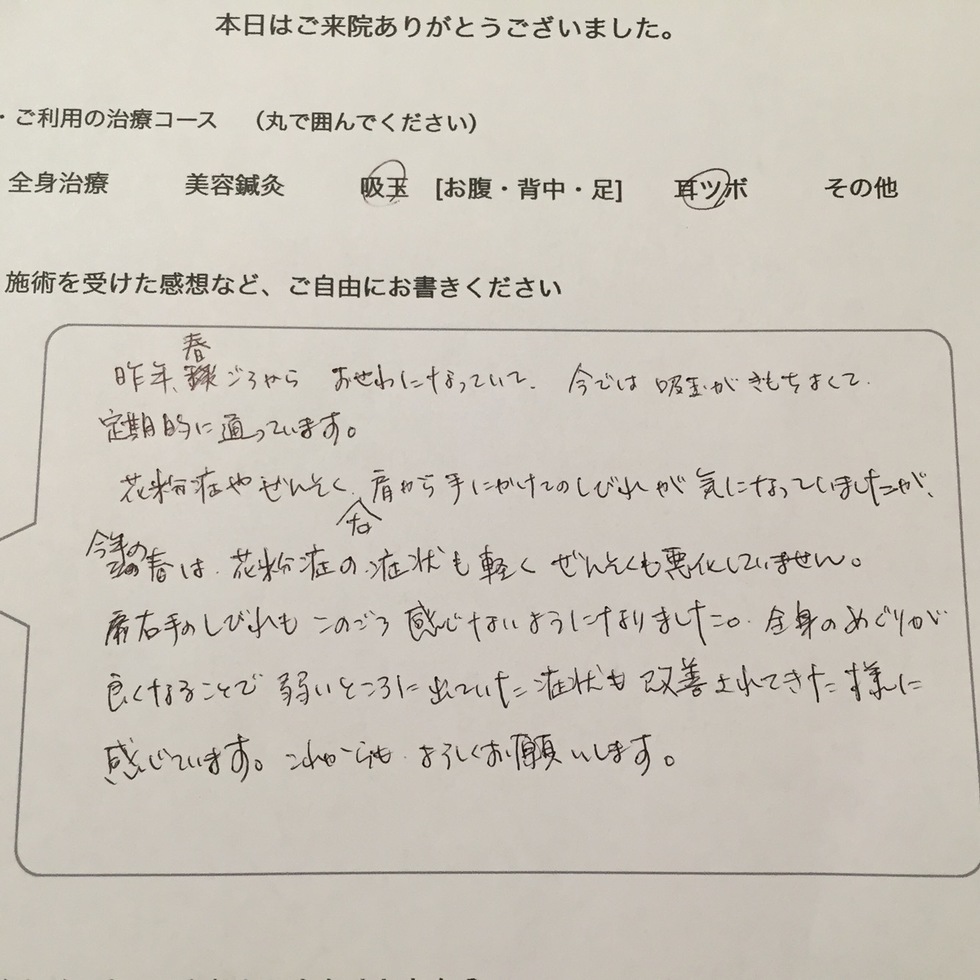 本日はご来院ありがとうございました。
・ご利用の治療コース （丸で囲んでください）
全身治療 美容鍼灸 吸玉 [お腹・背中・足] 耳ツボ その他
施術を受けた感想など、ご自由にお書きください
昨年、春ごろから おせわになっていて、今では 吸玉がきもちよくて、
定期的に通っています。
花粉症やぜんそく、肩から右手にかけてのしびれが気になっていましたが、
今年の春は、花粉症の症状も軽く ぜんそくも悪化していません。
右手のしびれも このごろ 感じないようになりました。全身のめぐりが
良くなることで 弱いところに出ていた症状も 改善されてきた様に
感じています。これからも よろしくお願いします。